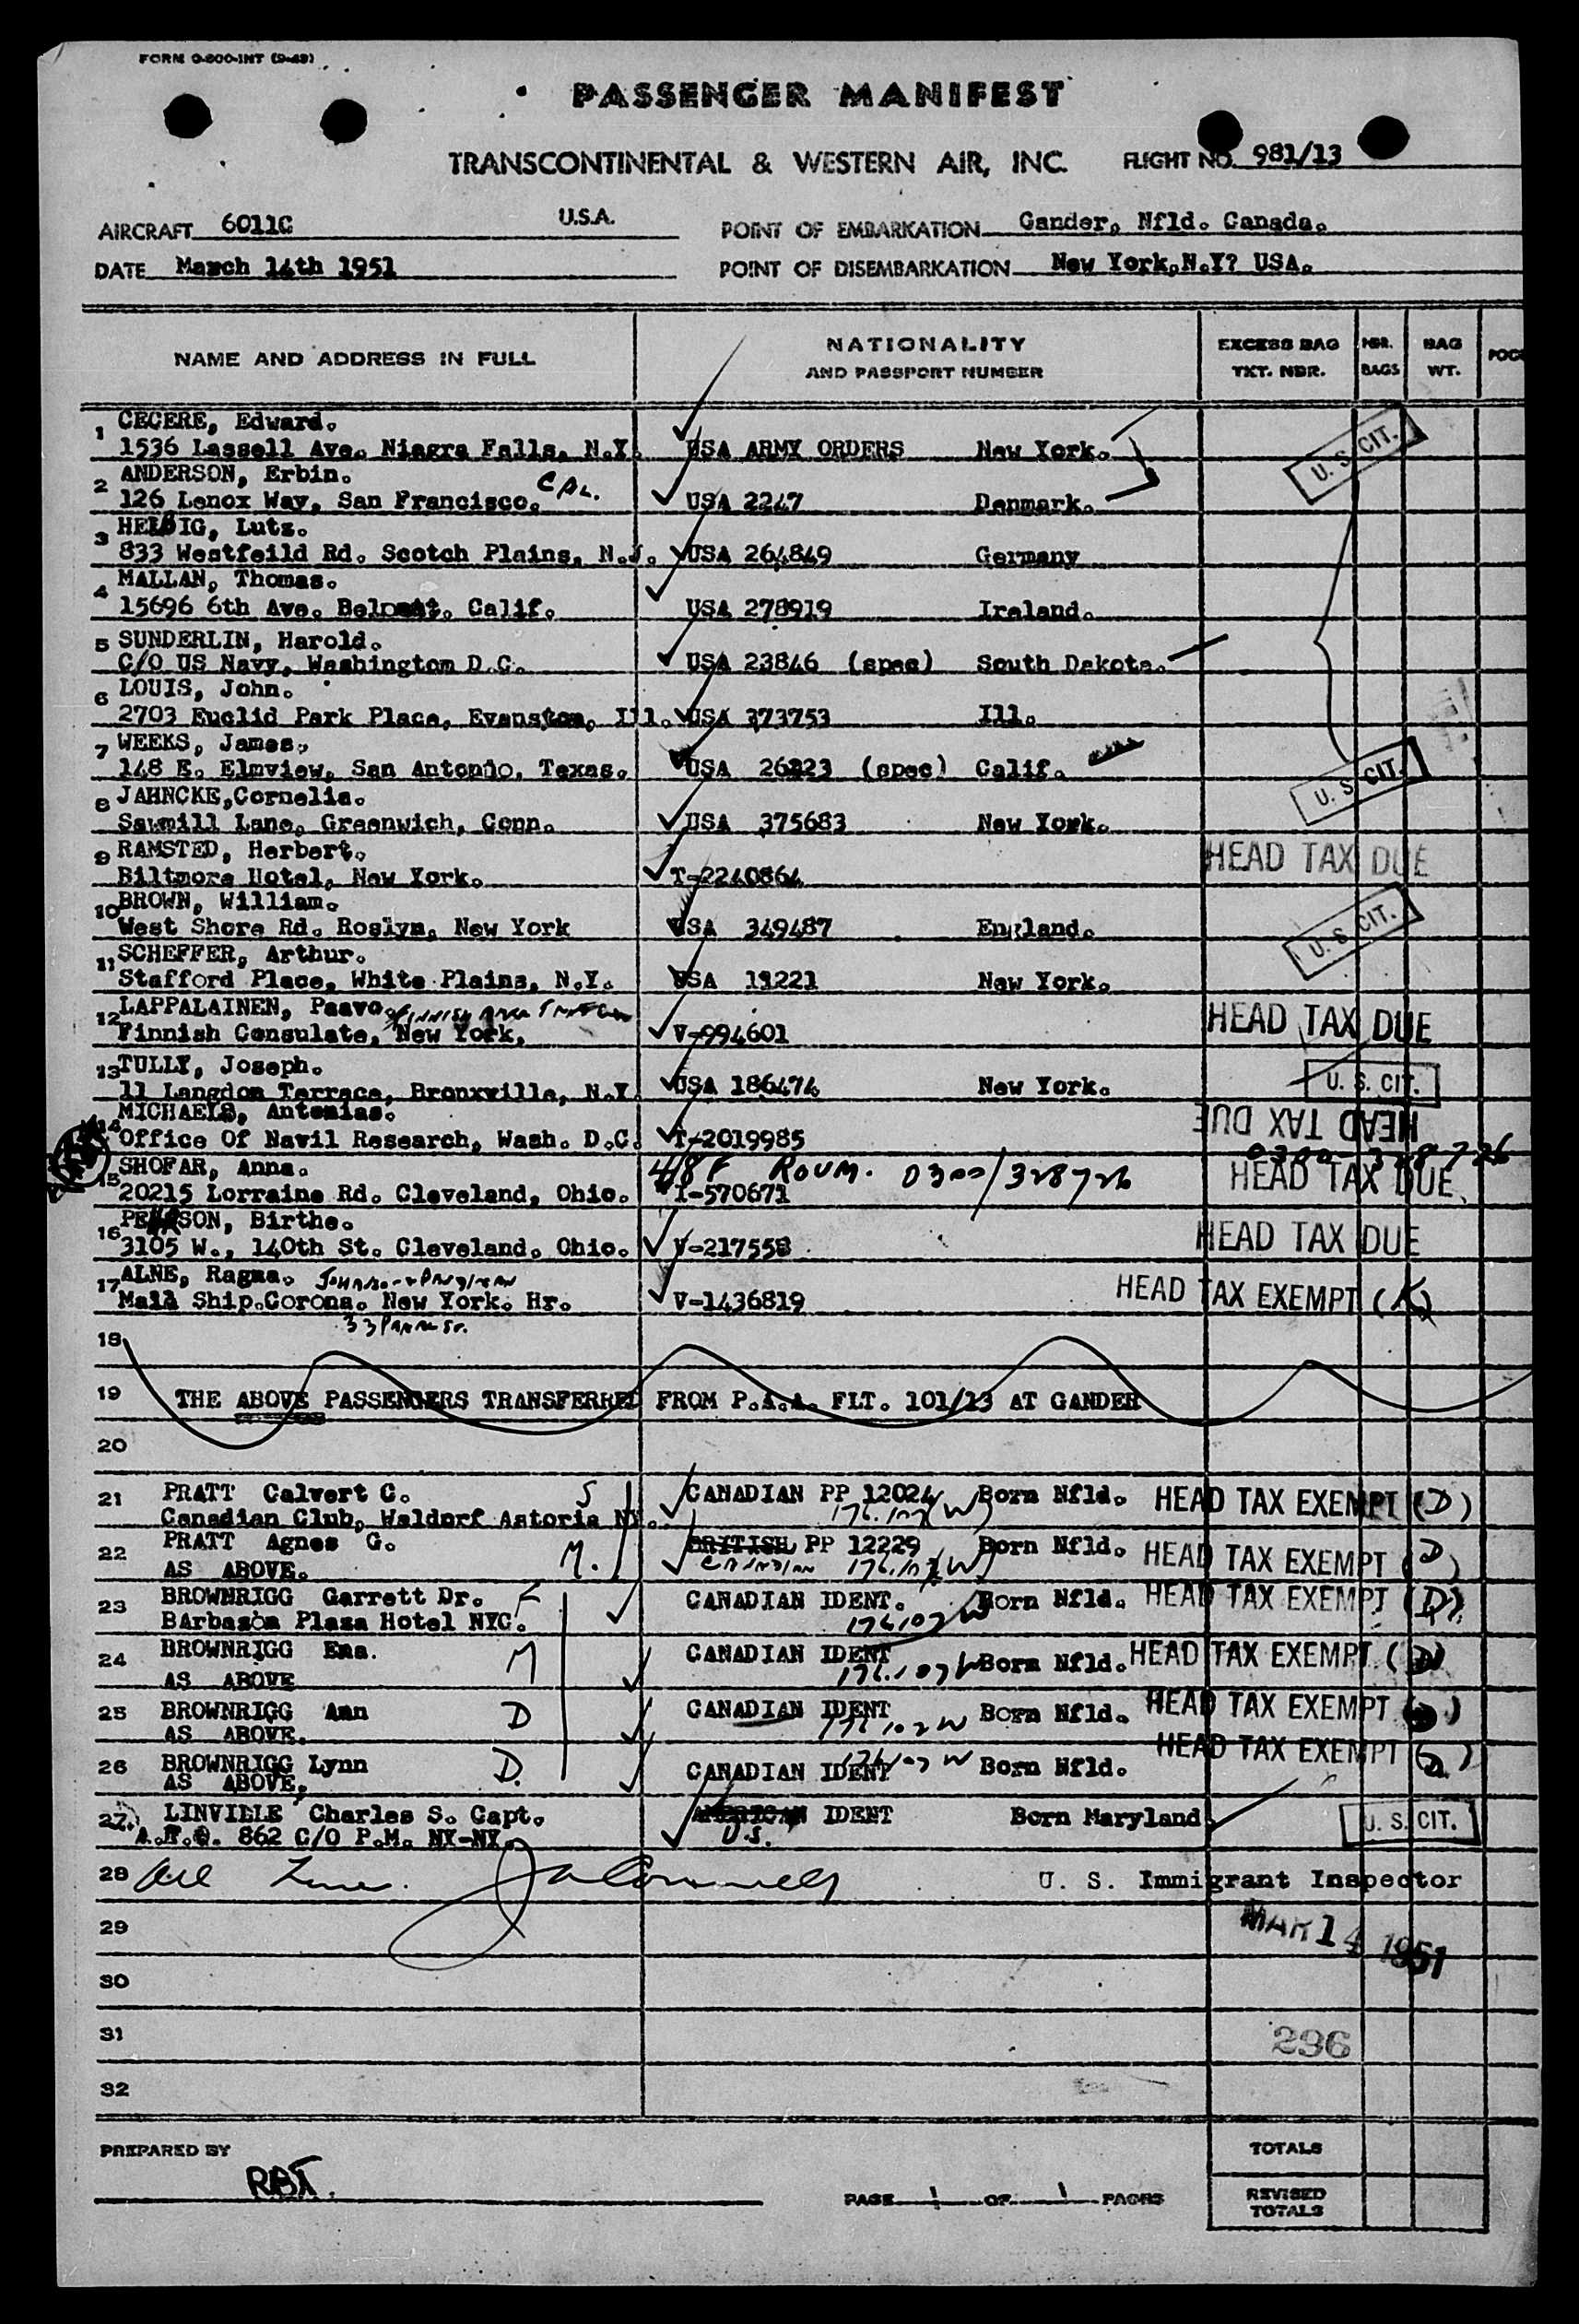 FORM O-800-INT (9-49)
PASSENGER MANIFEST
TRANSCONTINENTAL & WESTERN AIR, INC. FLIGHT NO. 981/13
AIRCRAFT 6011C U.S.A. POINT OF EMBARKATION Gander, Nfld. Canada.
DATE March 14th 1951 POINT OF DISEMBARKATION New York,N.Y? USA.
NAME AND ADDRESS IN FULL NATIONALITY AND PASSPORT NUMBER EXCESS BAG TKT. NBR. NBR. BAGS BAG WT.
1 CECERE, Edward.
1536 Lassell Ave. Niagra Falls, N.Y. USA ARMY ORDERS New York. U. S. CIT.
2 ANDERSON, Erbin.
126 Lenox Way, San Francisco. CAL. USA 2247 Denmark.
3 HELBIG, Lutz.
833 Westfeild Rd. Scotch Plains, N.J. USA 264849 Germany
4 MALLAN, Thomas.
15696 6th Ave. Calif. USA 278919 Ireland.
5 SUNDERLIN, Harold.
C/O US Navy, Washington D.C. USA 23846 (spec) South Dakota.
6 LOUIS, John.
2703 Euclid Park Place, Evanston, Ill. USA 373753 Ill.
7 WEEKS, James.
148 E. Elmview, San Antonio, Texas. USA 26223 (spec) Calif.
8 JAHNCKE,Cornelia. U. S. CIT.
Sawmill Lane, Greenwich, Conn. USA 375683 New York.
9 RAMSTED, Herbert. HEAD TAX DUE
Biltmore Hotel, New York. T-2240864
10 BROWN, William.
West Shore Rd. Roslyn, New York USA 349487 England. U. S. CIT.
11 SCHEFFER, Arthur.
Stafford Place, White Plains, N.Y. USA 11221 New York.
12 LAPPALAINEN, Paavo. HEAD TAX DUE
Finnish Consulate, New York. V-994601
13 TULLY, Joseph.
11 Langdon Terrace, Bronxville, N.Y. USA 186474 New York. U. S. CIT.
14 MICHAELS, Antonias. HEAD TAX DUE
Office Of Navil Research, Wash. D.C. T-2019985
15 SHOFAR, Anna. 48 F ROUM. 0300/328726 0300 328726 HEAD TAX DUE
20215 Lorraine Rd. Cleveland, Ohio. T-570671
16 PEHRSON, Birthe. HEAD TAX DUE
3105 W., 140th St. Cleveland. Ohio. V-217558
17 ALNE, Ragna. HEAD TAX EXEMPT (K)
Mail Ship.Corona. New York. Hr. V-1436819
18
19 THE ABOVE PASSENGERS TRANSFERRED FROM P.A.A. FLT. 101/13 AT GANDER
20
21 PRATT Calvert C. S CANADIAN PP 12024 Born Nfld. HEAD TAX EXEMPT (D)
Canadian Club, Waldorf Astoria NY. 176.107 W
22 PRATT Agnes G. M. BRITISH PP 12229 Born Nfld. HEAD TAX EXEMPT (D)
AS ABOVE. CANADIAN 176.107 W
23 BROWNRIGG Garrett Dr. F CANADIAN IDENT. Born Nfld. HEAD TAX EXEMPT (D)
BArbason Plaza Hotel NYC. 176.107 W
24 BROWNRIGG Ena. M CANADIAN IDENT Born Nfld. HEAD TAX EXEMPT (D)
AS ABOVE 176.107 W
25 BROWNRIGG Ann D CANADIAN IDENT Born Nfld. HEAD TAX EXEMPT (D)
AS ABOVE. 176.107 W
26 BROWNRIGG Lynn D. CANADIAN IDENT 176.107 W Born Nfld. HEAD TAX EXEMPT (D)
AS ABOVE.
27 LINVILLE Charles S. Capt. AMERICAN IDENT Born Maryland U. S. CIT.
A.P.O. 862 C/O P.M. NY-NY. U.S.
28 U. S. Immigrant Inspector
29 MAR 14 1951
30
31 296
32
PREPARED BY RBT. TOTALS
PAGE 1 OF 1 PAGES REVISED TOTALS